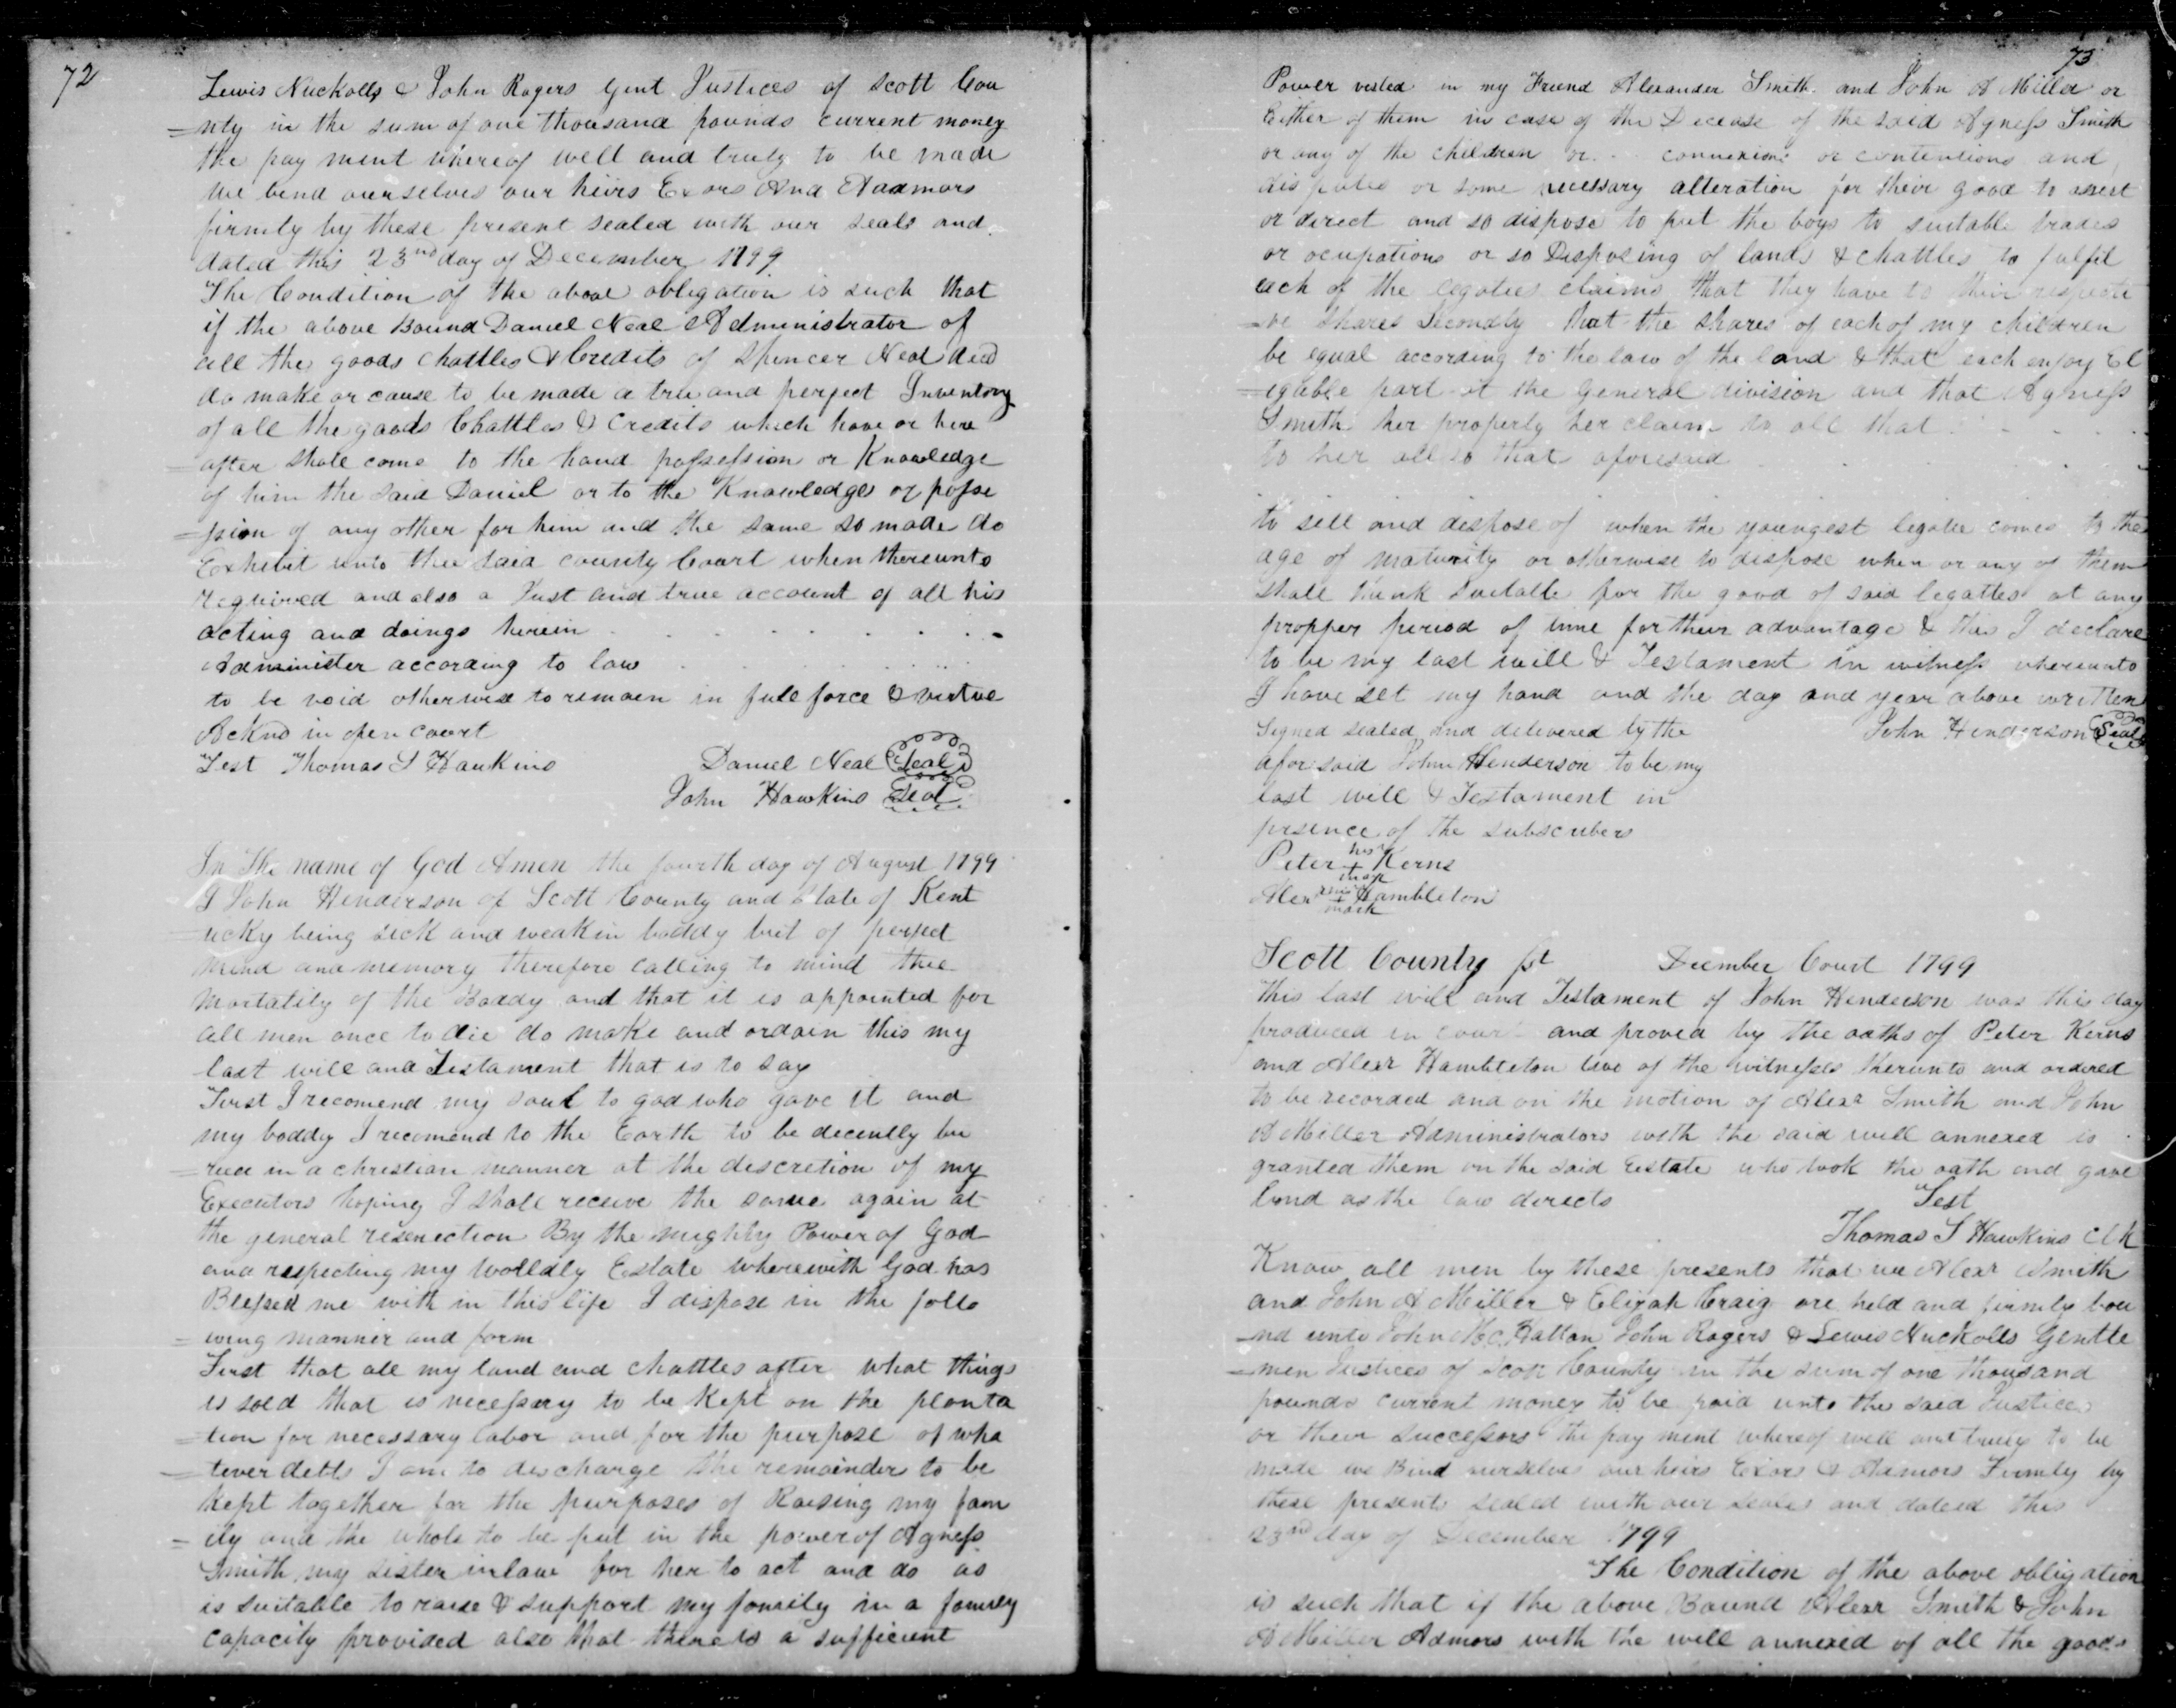 72
Lewis Nuckolls & John Rogers Gent Justices of Scott Cou
=nty in the sum of one thousand pounds current money
the pay ment whereof well and truly to be made
we bend ourselves our heirs Exors And Aadmors
firmly by these present sealed with our seals and
dated this 23nd day of December 1799
The Condition of the above obligation is such that
if the above Bound Daniel Neal Administrator of
all the goods chattles & Credits of Spencer Neal decd
do make or cause to be made a true and perfect Inventory
of all the goods Chattles & Credits which have or here
=after shall come to the hand possession or Knowledge
of him the said Daniel or to the Knowledge or posse
=ssion of any other for him and the same so made do
Exhibit unto the said county Court when thereunto
required and also a Just and true account of all his
acting and doings herein . . . . . . . .
Administer according to law . . . . . .
to be void otherwise to remain in full force & virtue
Acknd in open court
Test Thomas S Hawkins Daniel Neal Seal
John Hawkins Seal
In The name of God Amen the fourth day of August 1799
I John Henderson of Scott County and State of Kent
=ucky being sick and weak in boddy but of perfect
mind and memory therefore calling to mind thee
mortality of the Boddy and that it is appointed for
all men once to die do make and ordain this my
last will and Testament that is to say
First I recomend my soul to god who gave it and
my boddy I recomend to the Earth to be decently bu
=ried in a christian manner at the discretion of my
Executors hoping I shall receive the same again at
the general reserection By the mighty Power of God
and respecting my Worldly Estate wherewith God has
Blessed me with in this life I dispose in the follo
=wing manner and form
First that all my land and chattles after what things
is sold that is necessary to be Kept on the planta
=tion for necessary labor and for the purpose of wha
=tever detts I am to discharge the remainder to be
kept together for the purposes of Raising my fam
=ily and the whole to be put in the power of Agness
Smith my sister inlaw for her to act and do as
is suitable to raise & support my family in a family
capacity provided also that there is a sufficient
73
Power vested in my Friend Alexander Smith and John A Miller or
Either of them in case of the Decease of the said Agness Smith
or any of the children or . . connexions or contentions and
disputes or some necessary alteration for their good to
or direct and so dispose to put the boys to suitable trades
or ocupations or so Disposing of lands & chattles to fulfil
each of the legatees claims that they have to their respecti
=ve shares Secondly that the shares of each of my children
be equal according to the law of the land & that each enjoy El
=igable part at the General division and that Agness
Smith her property her claim to all that . . . .
to her all so that aforesaid . . . .
to sell and dispose of when the youngest legatee comes to the
age of maturity or otherwise to dispose when or any of them
shall think suitable for the good of said legattes at any
propper period of time for their advantage & this I declare
to be my last will & Testament in witness whereunto
I have set my hand and the day and year above written
Signed sealed and delivered by the John Henderson Seal
afor said John Henderson to be my
last will & Testament in
presence of the subscribers
Peter his + mark Kerns
Alexr his + mark Hambleton
Scott County sst December Court 1799
This last will and Testament of John Henderson was this day
produced in court and proved by the oaths of Peter Kerns
and Alexr Hambleton two of the witnesses therunto and ordered
to be recorded and on the motion of Alexr Smith and John
A Miller Administrators with the said will annexed is
granted them on the said Estate who took the oath and gave
bond as the law directs Test
Thomas S Hawkins Clk
Know all men by these presents that we Alexr Smith
and John A Miller & Elijah Craig are held and firmly bou
=nd unto John Mc.Hatton John Rogers & Lewis Nuckolls Gentle
=men Justices of Scott County in the sum of one thousand
pounds current money to be paid unto the said Justices
or their successors the pay ment whereof well and truly to be
made we Bind ourselves our heirs Exors & Admors Firmly by
these presents sealed with our seales and dateed this
23nd day of December 1799
The Condition of the above obligation
is such that if the above Bound Alexr Smith & John
A Miller Admors with the will annexed of all the goods